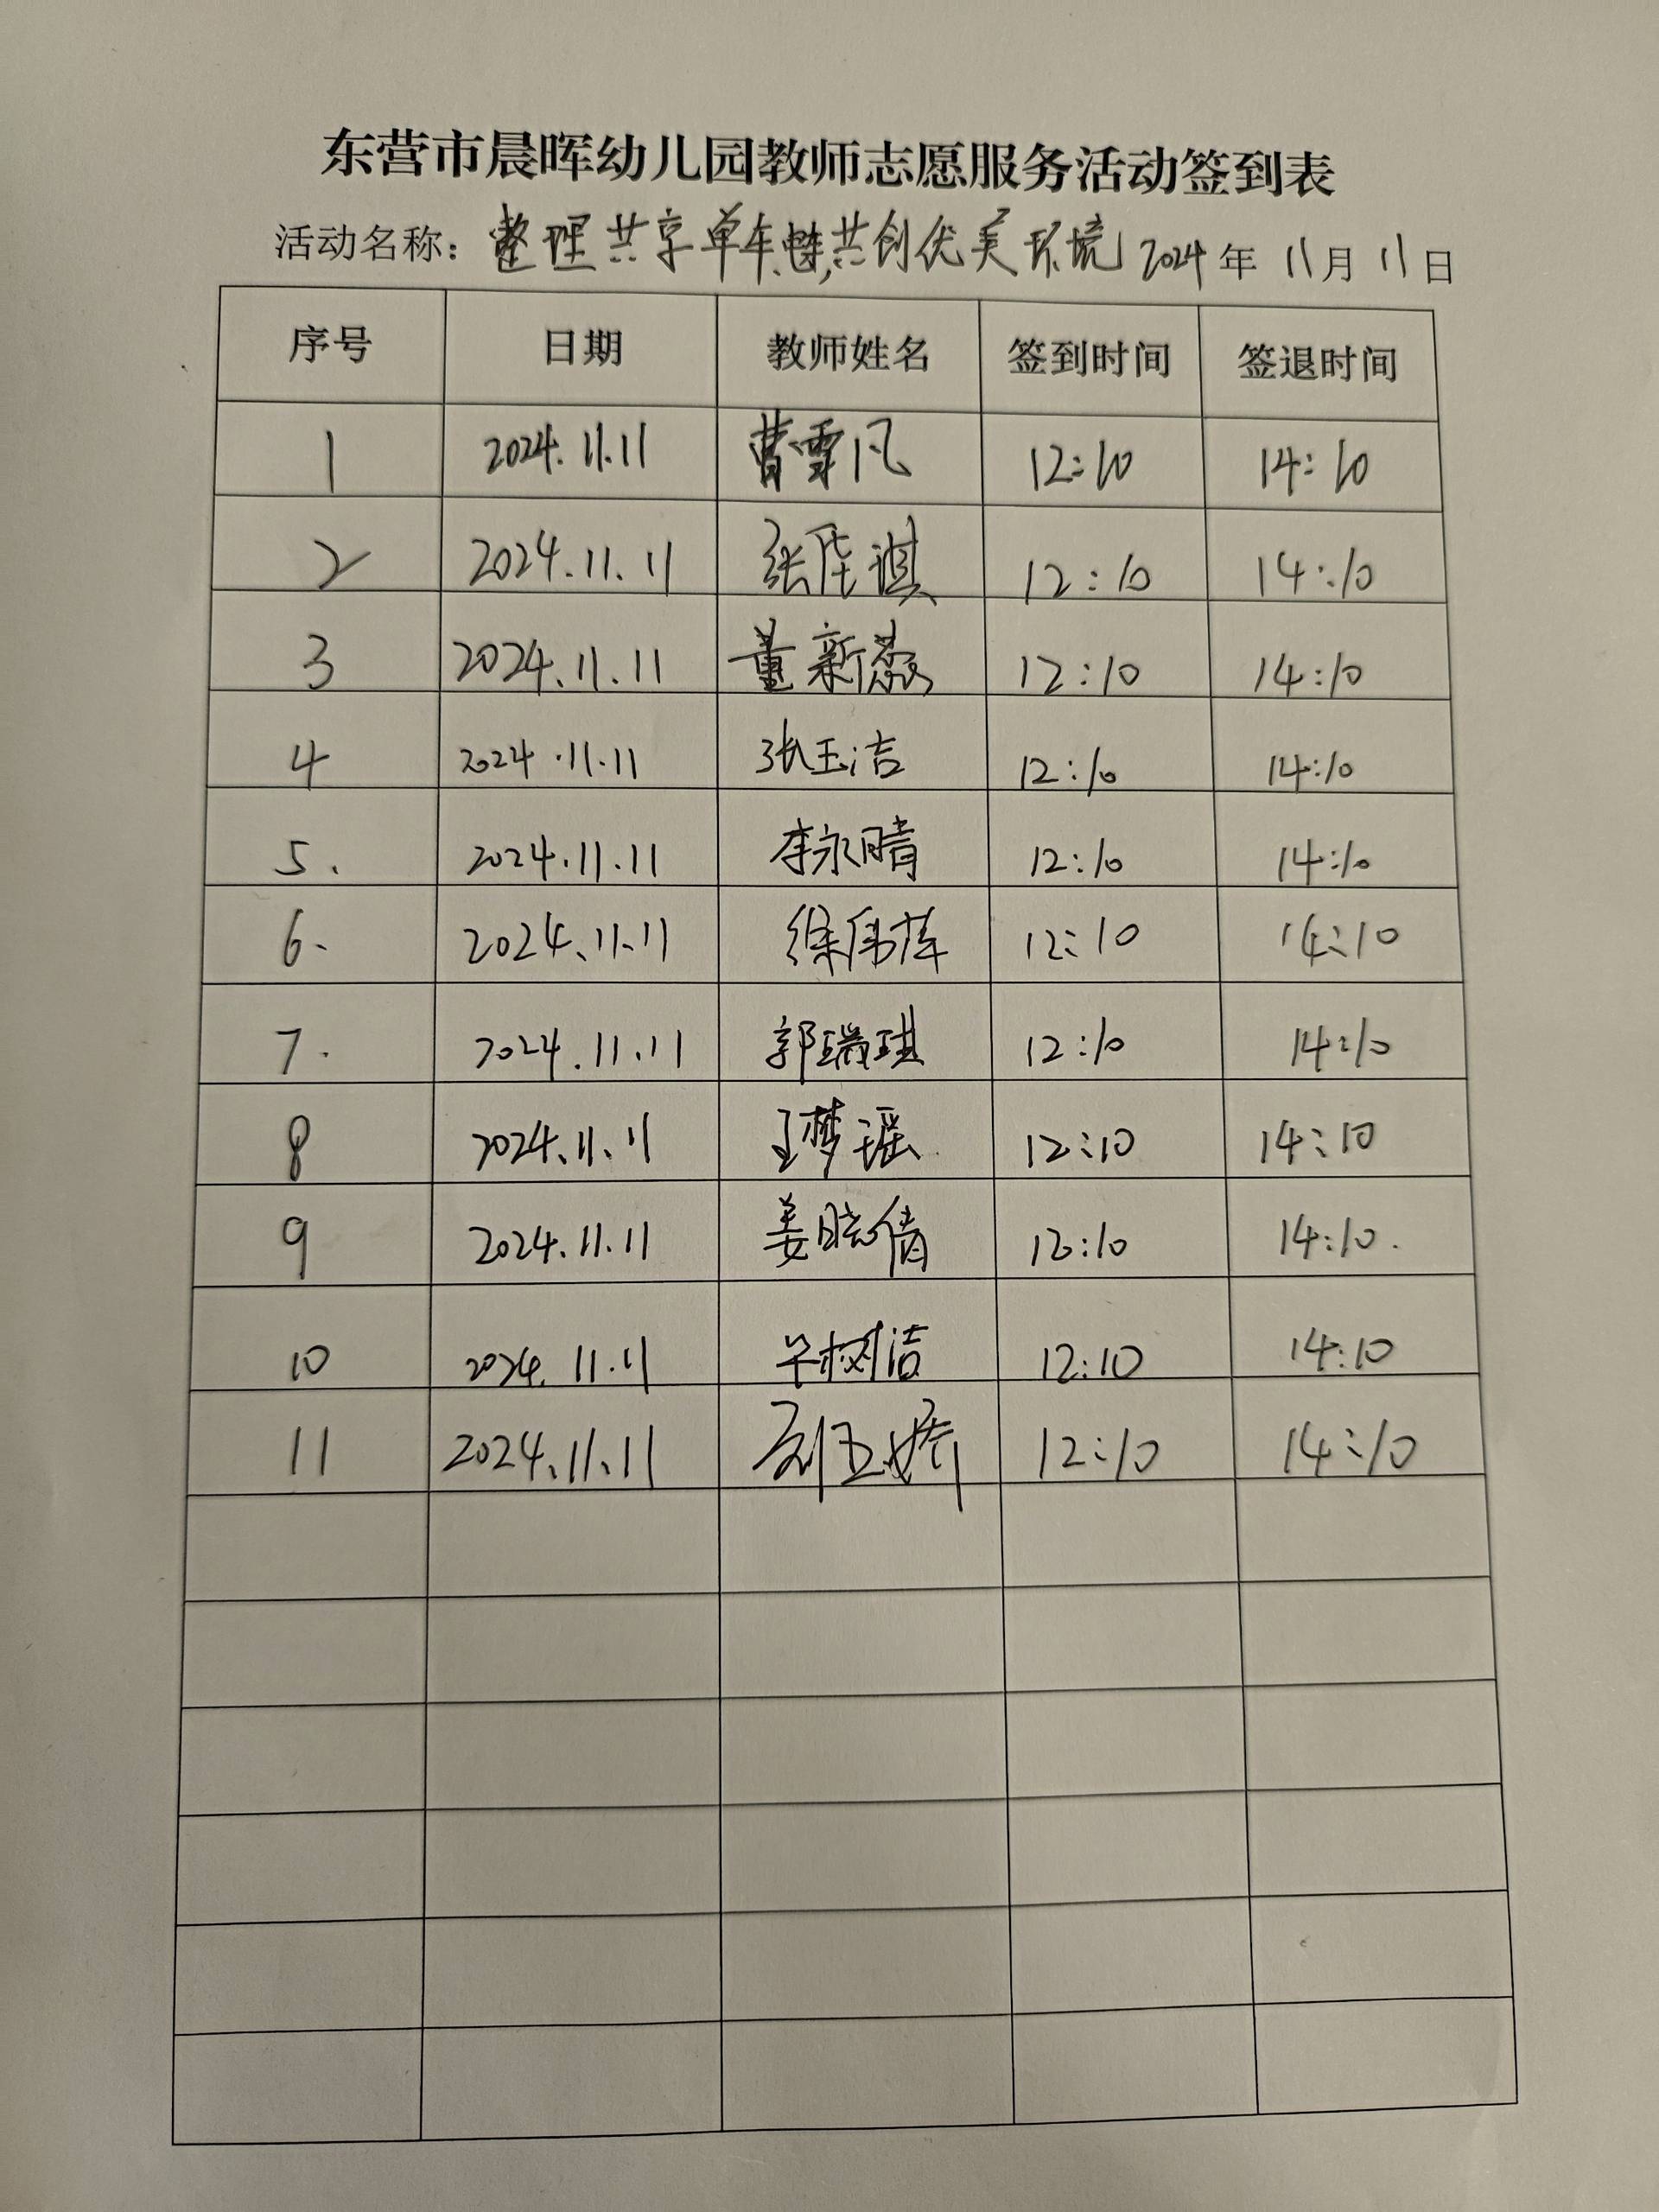 东营市晨晖幼儿园教师志愿服务活动签到表
活动名称：整理共享单车,共创优美环境 2024年 11月 11日
序号 日期 教师姓名 签到时间 签退时间
1 2024.11.11 曹雪凡 12:10 14:10
2 2024.11.11 张 12:10 14:10
3 2024.11.11 董新蕊 12:10 14:10
4 2024.11.11 张玉洁 12:10 14:10
5. 2024.11.11 李永晴 12:10 14:10
6. 2024.11.11 徐伟 12:10 14:10
7. 2024.11.11 郭瑞琪 12:10 14:10
8 2024.11.11 王梦瑶 12:10 14:10
9 2024.11.11 姜晓倩 12:10 14:10.
10 2024.11.11 树洁 12:10 14:10
11 2024.11.11 刘玉娇 12:10 14:10